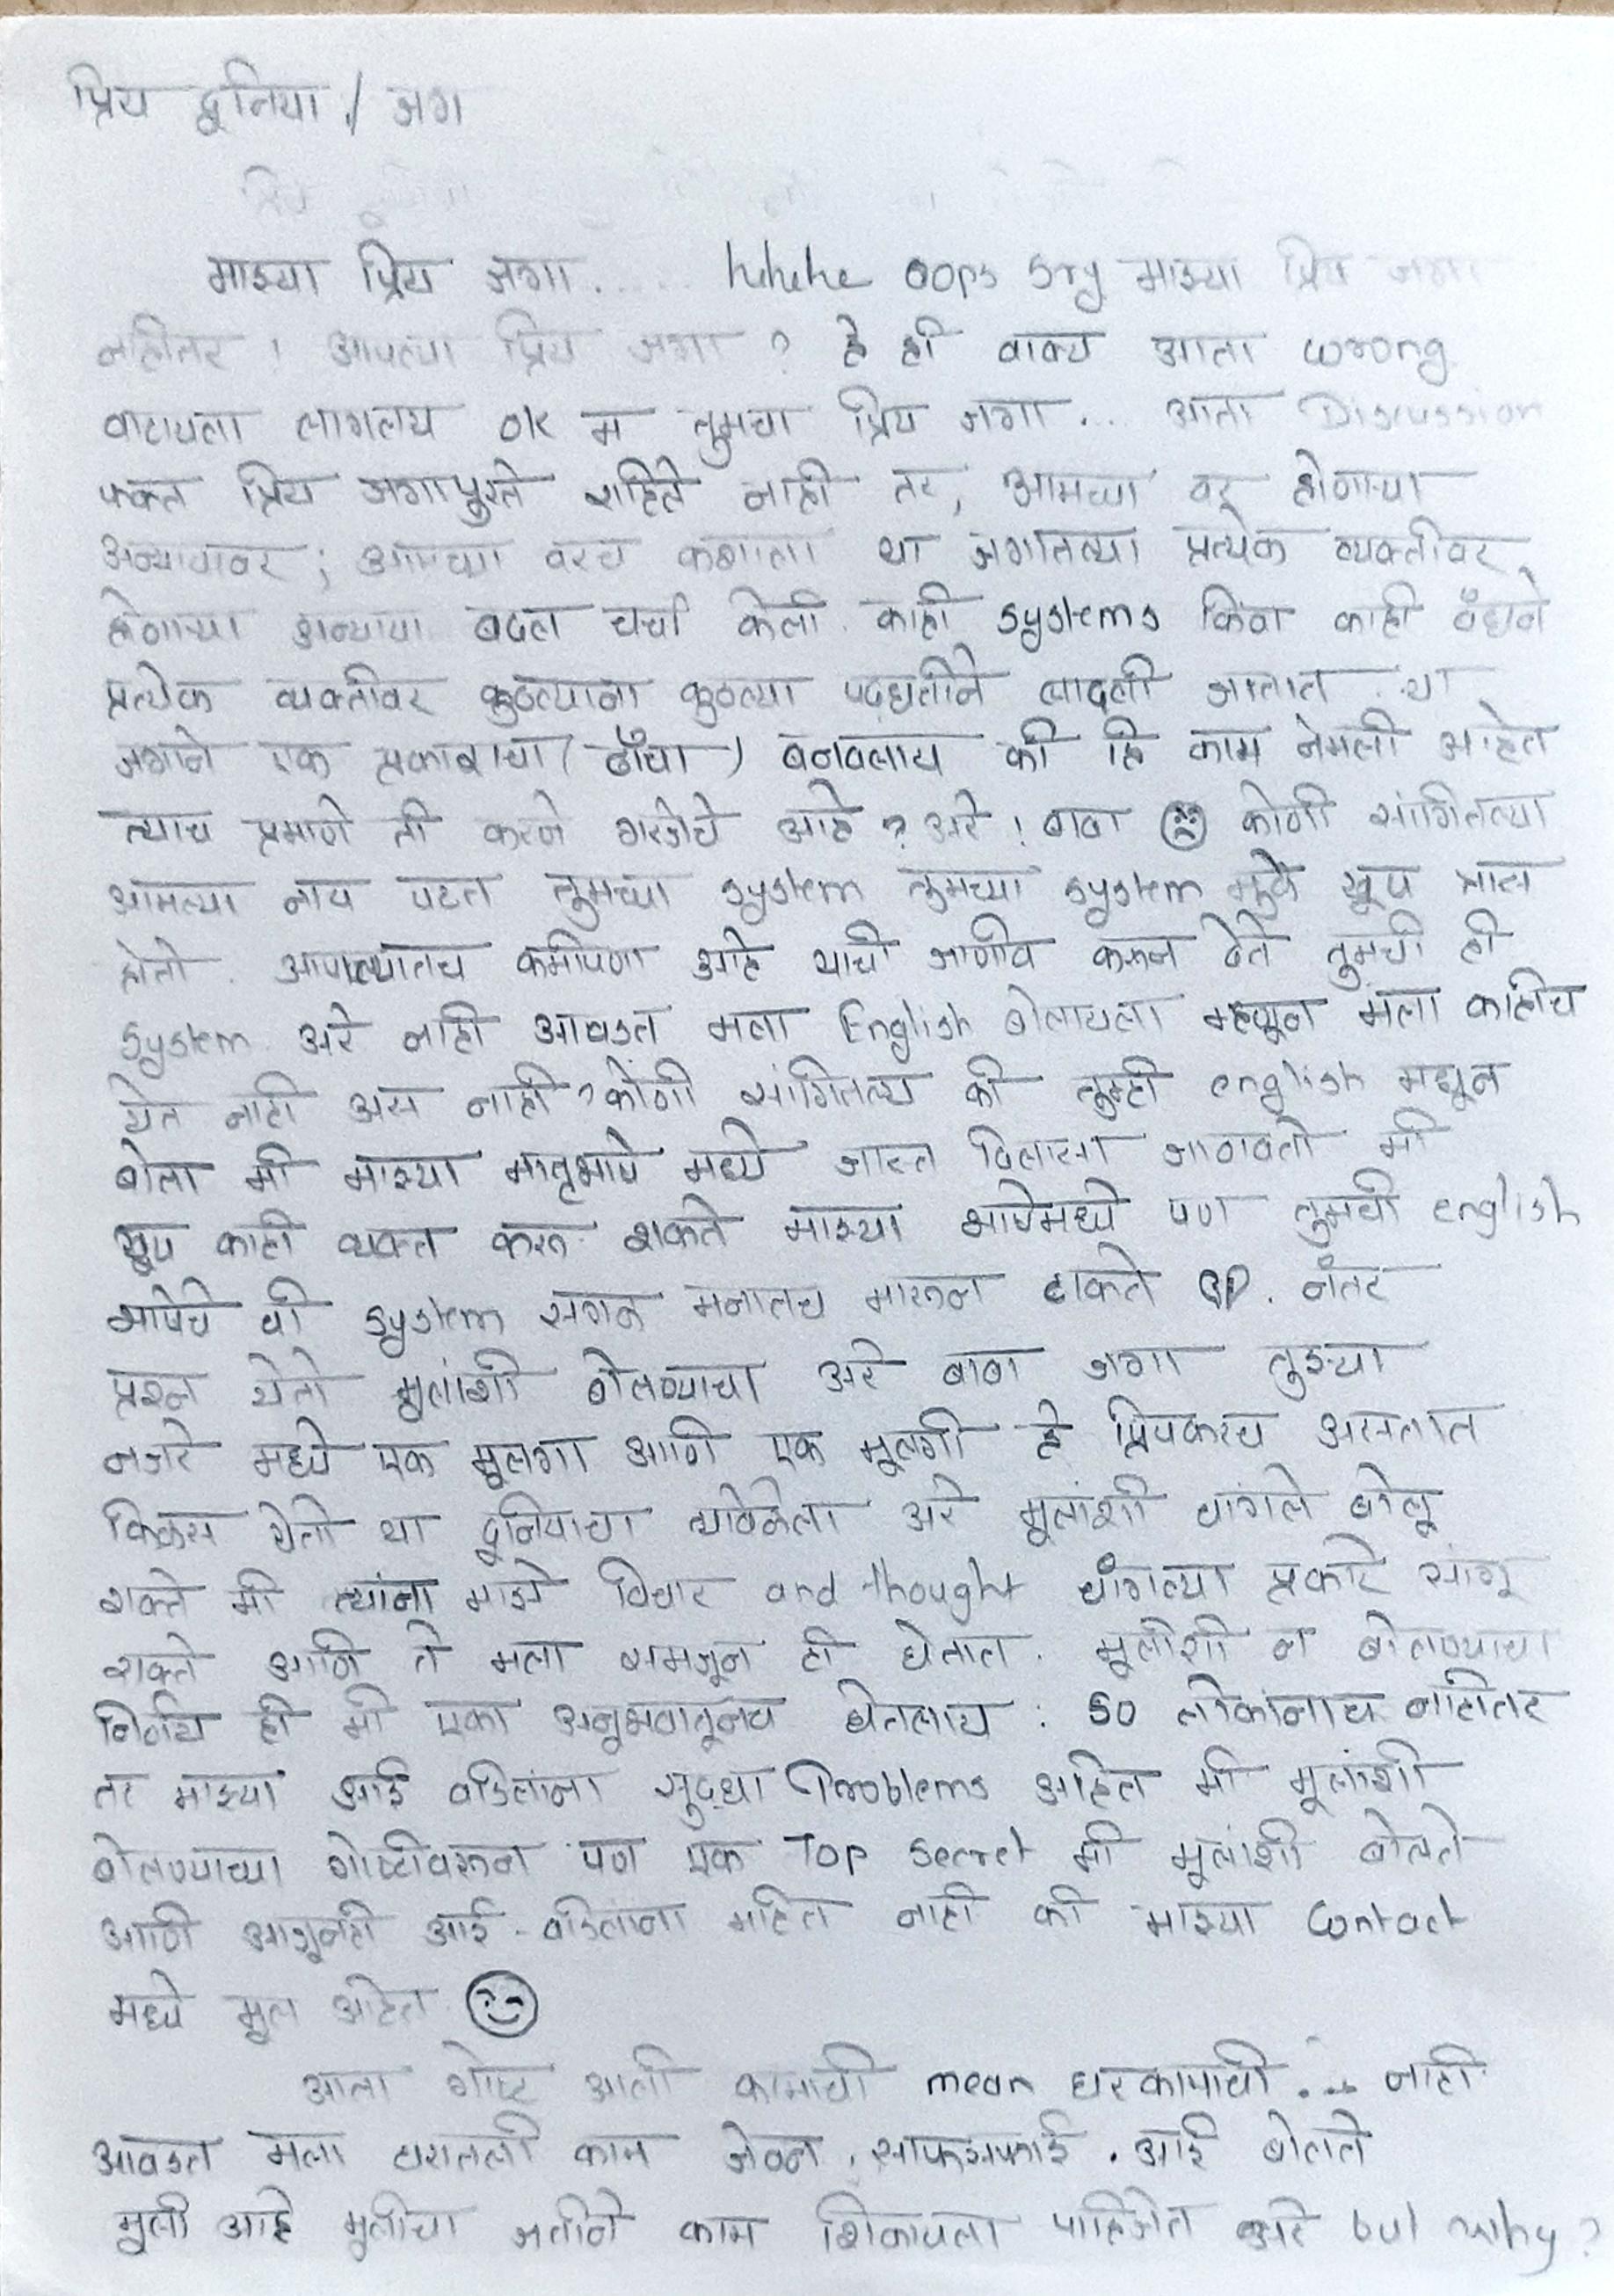 प्रिय दूनिया / जग
माझ्या प्रिय जगा...... hehehe oops sry माझ्या प्रिय जगा
नाहीतर ! आपल्या प्रिय जगा ? हे ही वाक्य आता wrong
वाटायला लागलय ok म तुमचा प्रिय जगा... आता Discussion
फक्त प्रिय जगापुरते राहिले नाही तर, आमच्या वर होणाऱ्या
अन्यायावर ; आमच्या वरच कशाला या जगातल्या प्रत्येक व्यक्तीवर
होणाऱ्या अन्याया बदल चर्चा केली. काही systems किंवा काही बँधने
प्रत्येक व्यक्तीवर कुठल्याना कुठल्या पद्धतीने लादली जातात. या
जगाने एक प्रकाराचा ( ढाँचा ) बनवलाय की हि काम नेमली आहेत
त्याच प्रमाणे ती करणे गरजेचे आहे ? अरे ! बाबा ☹ कोणी सांगितल्या
आमत्या नाय पटत तुमच्या system तुमच्या system मुळे खूप त्रास
होतो. आपल्यातच कमीपणा आहे याची जाणीव करून देते तुमची ही
system. अरे नाही आवडत मला English बोलायला म्हणून मला काहीच
येत नाही अस नाही ? कोणी सांगितल्य की तुम्ही english मधून
बोला मी माझ्या मातृभाषे मध्ये जास्त दिलासा जाणवतो मी
खूप काही व्यक्त करू शकते माझ्या भाषेमध्ये पण तुमची english
भाषेचे ची system सगळ मनातच मारून टाकते. नँतर
प्रश्न येतो मुलांशी बोलण्याचा अरे बाबा जगा तुझ्या
नजरे मध्ये एक मूलगा आणि एक मूलगी हे प्रियकरच असतात
किळस येतो या दूनियाचा त्यावेळेला अरे मूलांशी चांगले बोलू
शकते मी त्यांना माझे विचार and thought चाँगल्या प्रकारे सांगू
शकते आणि ते मला समजून ही घेतात. मूलींशी न बोलण्याचा
निर्णय ही मी एका अनूभवातूनच घेतलाय : so लोकांनाच नाहीतर
तर माझ्या आई वडिलांना सुद्धा Problems आहेत मी मूलांशी
बोलण्याच्या गोष्टीवरून पण एक Top secret मी मूलांशी बोलते
आणि आजूनही आई-वडिलांना माहित नाही की माझ्या Contact
मध्ये मूल आहेत. ☺
आता गोष्ट आली कामाची mean घरकामाची... नाही
आवडत मला घरातली काम जेवन, साफसफाई. आई बोलते
मूली आहे मूलीचा जातीने काम शिकायला पाहिजेत अरे but why?